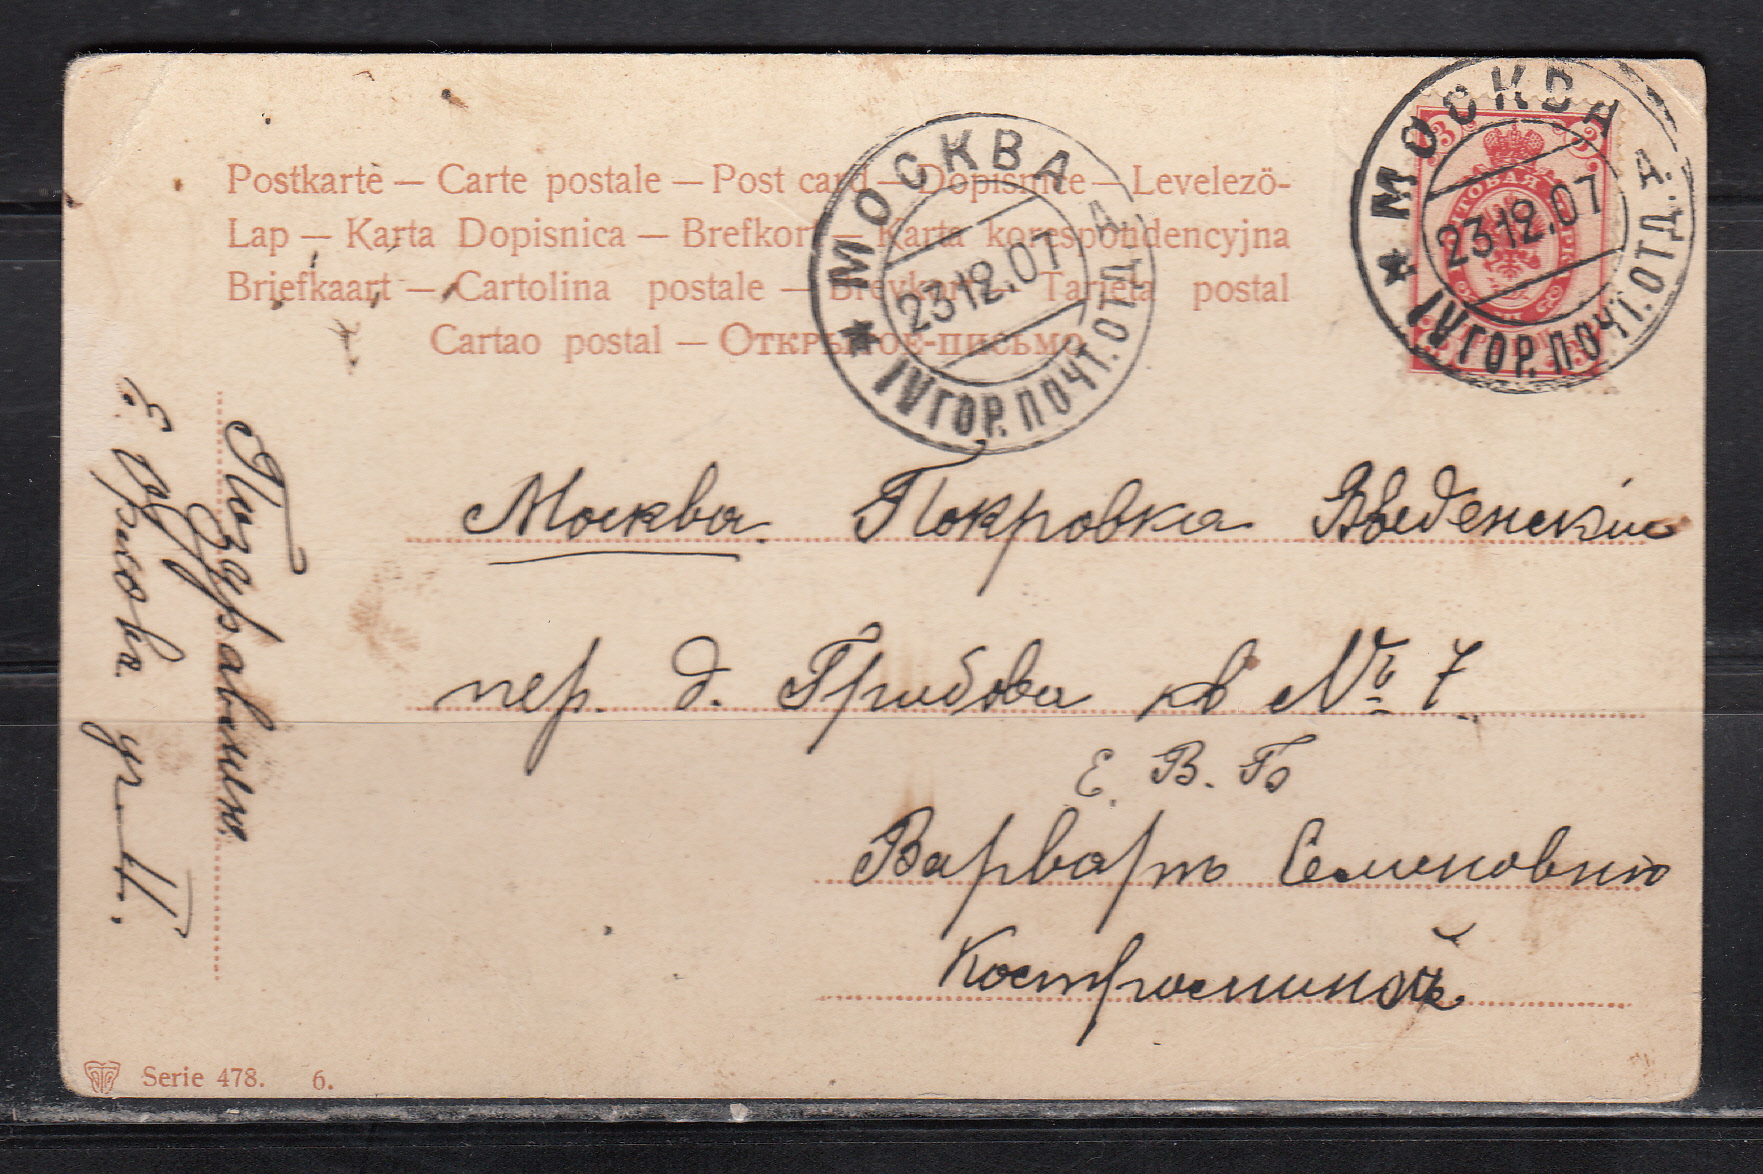 Postkarte — Carte postale — Post card — Dopisnice — Levelezö-
Lap — Karta Dopisnica — Brefkort — Karta korespondencyjna
Briefkaart — Cartolina postale — Brevkort — Tarjeta postal
Cartao postal — Открытое-письмо
МОСКВА
23.12.07
IV ГОР. ПОЧТ. ОТД. А.
МОСКВА
23.12.07
IV ГОР. ПОЧТ. ОТД. А.
3
Москва. Покровка Введенскiй
пер. д. Грибова кв № 7
Е. В. Б
Варваръ Семеновню
Костроминой
Поздравляю
Е.
Serie 478. 6.